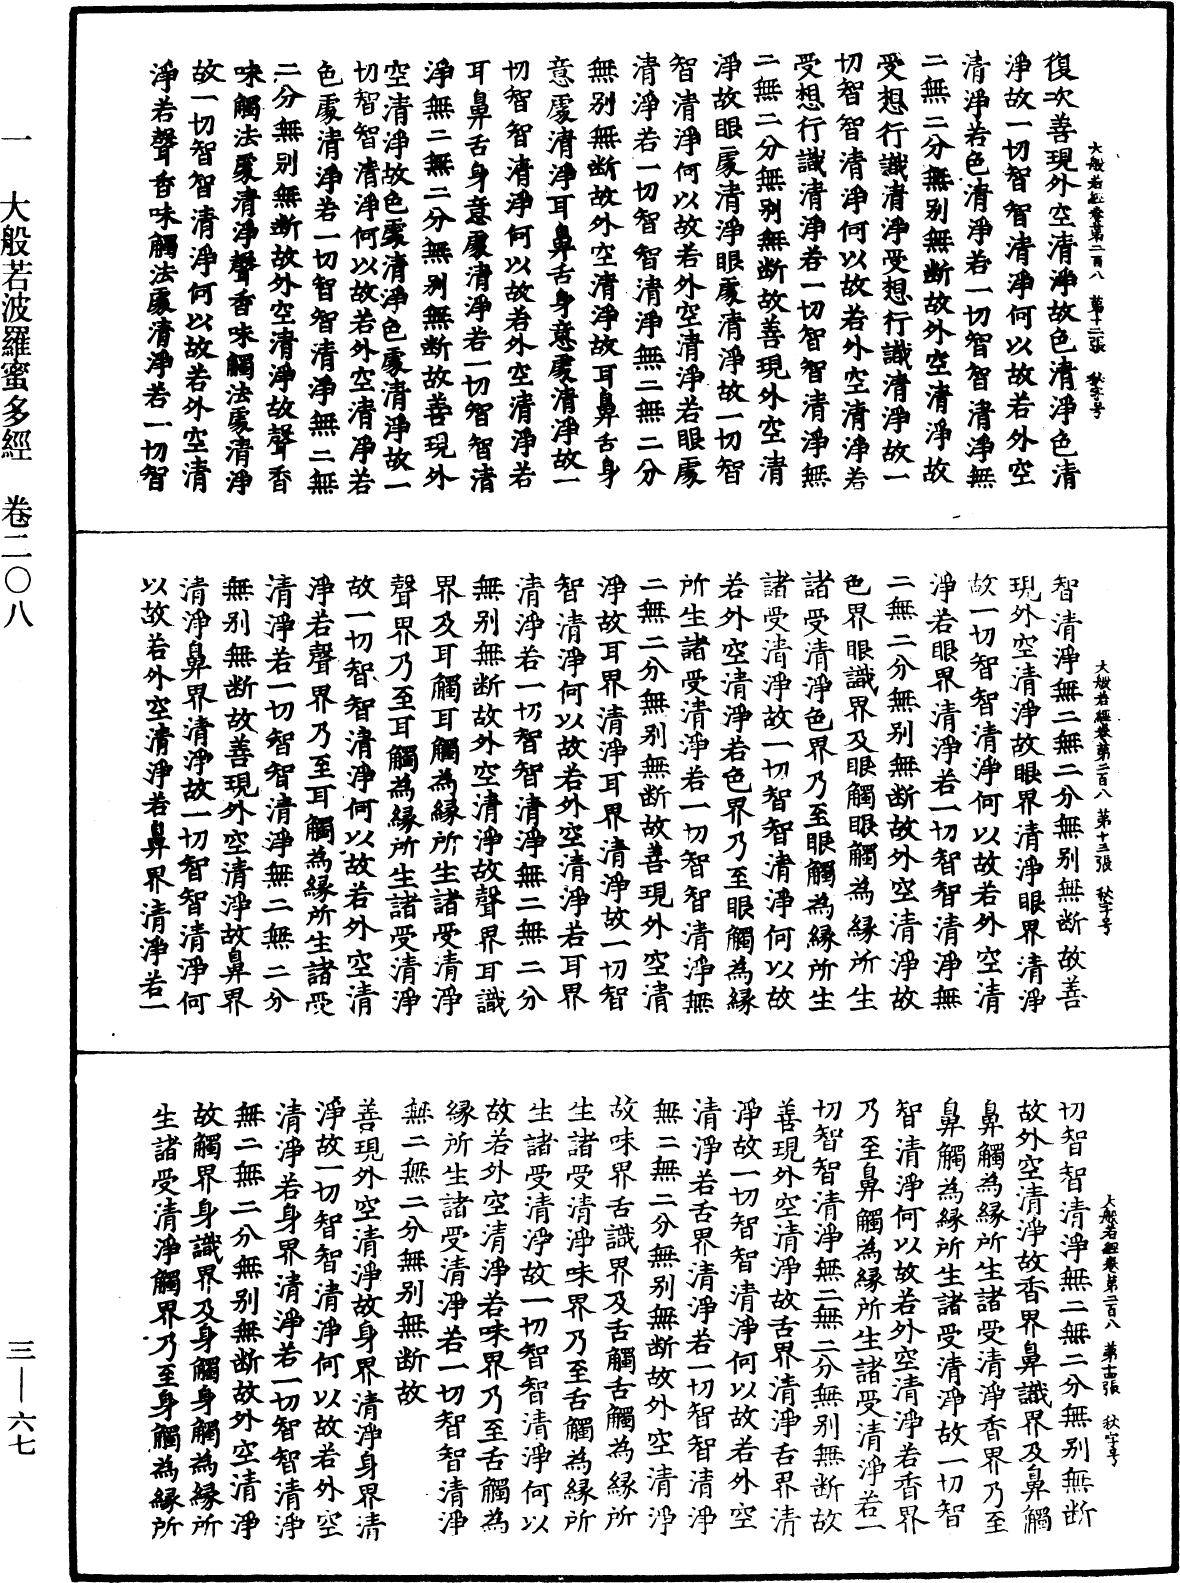 大般若經卷第二百八 第十二張 秋字号
復次善現外空清淨故色清淨色清
淨故一切智智清淨何以故若外空
清淨若色清淨若一切智智清淨無
二無二分無別無断故外空清淨故
受想行識清淨受想行識清淨故一
切智智清淨何以故若外空清淨若
受想行識清淨若一切智智清淨無
二無二分無別無断故善現外空清
淨故眼處清淨眼處清淨故一切智
智清淨何以故若外空清淨若眼處
清淨若一切智智清淨無二無二分
無別無断故外空清淨故耳鼻舌身
意處清淨耳鼻舌身意處清淨故一
切智智清淨何以故若外空清淨若
耳鼻舌身意處清淨若一切智智清
淨無二無二分無別無断故善現外
空清淨故色處清淨色處清淨故一
切智智清淨何以故若外空清淨若
色處清淨若一切智智清淨無二無
二分無別無断故外空清淨故聲香
味觸法處清淨聲香味觸法處清淨
故一切智智清淨何以故若外空清
淨若聲香味觸法處清淨若一切智
大般若經卷第二百八 第十三張 秋字号
智清淨無二無二分無別無断故善
現外空清淨故眼界清淨眼界清淨
故一切智智清淨何以故若外空清
淨若眼界清淨若一切智智清淨無
二無二分無別無断故外空清淨故
色界眼識界及眼觸眼觸為緣所生
諸受清淨色界乃至眼觸為緣所生
諸受清淨故一切智智清淨何以故
若外空清淨若色界乃至眼觸為緣
所生諸受清淨若一切智智清淨無
二無二分無別無断故善現外空清
淨故耳界清淨耳界清淨故一切智
智清淨何以故若外空清淨若耳界
清淨若一切智智清淨無二無二分
無別無断故外空清淨故聲界耳識
界及耳觸耳觸為緣所生諸受清淨
聲界乃至耳觸為緣所生諸受清淨
故一切智智清淨何以故若外空清
淨若聲界乃至耳觸為緣所生諸受
清淨若一切智智清淨無二無二分
無別無断故善現外空清淨故鼻界
清淨鼻界清淨故一切智智清淨何
以故若外空清淨若鼻界清淨若一
大般若經卷第二百八 第十四張 秋字号
切智智清淨無二無二分無別無断
故外空清淨故香界鼻識界及鼻觸
鼻觸為緣所生諸受清淨香界乃至
鼻觸為緣所生諸受清淨故一切智
智清淨何以故若外空清淨若香界
乃至鼻觸為緣所生諸受清淨若一
切智智清淨無二無二分無別無断故
善現外空清淨故舌界清淨舌界清
淨故一切智智清淨何以故若外空
清淨若舌界清淨若一切智智清淨
無二無二分無別無断故外空清淨
故味界舌識界及舌觸舌觸為緣所
生諸受清淨味界乃至舌觸為緣所
生諸受清淨故一切智智清淨何以
故若外空清淨若味界乃至舌觸為
緣所生諸受清淨若一切智智清淨
無二無二分無別無断故
善現外空清淨故身界清淨身界清
淨故一切智智清淨何以故若外空
清淨若身界清淨若一切智智清淨
無二無二分無別無断故外空清淨
故觸界身識界及身觸身觸為緣所
生諸受清淨觸界乃至身觸為緣所
一 大般若波羅蜜多經 卷二〇八
三—六七